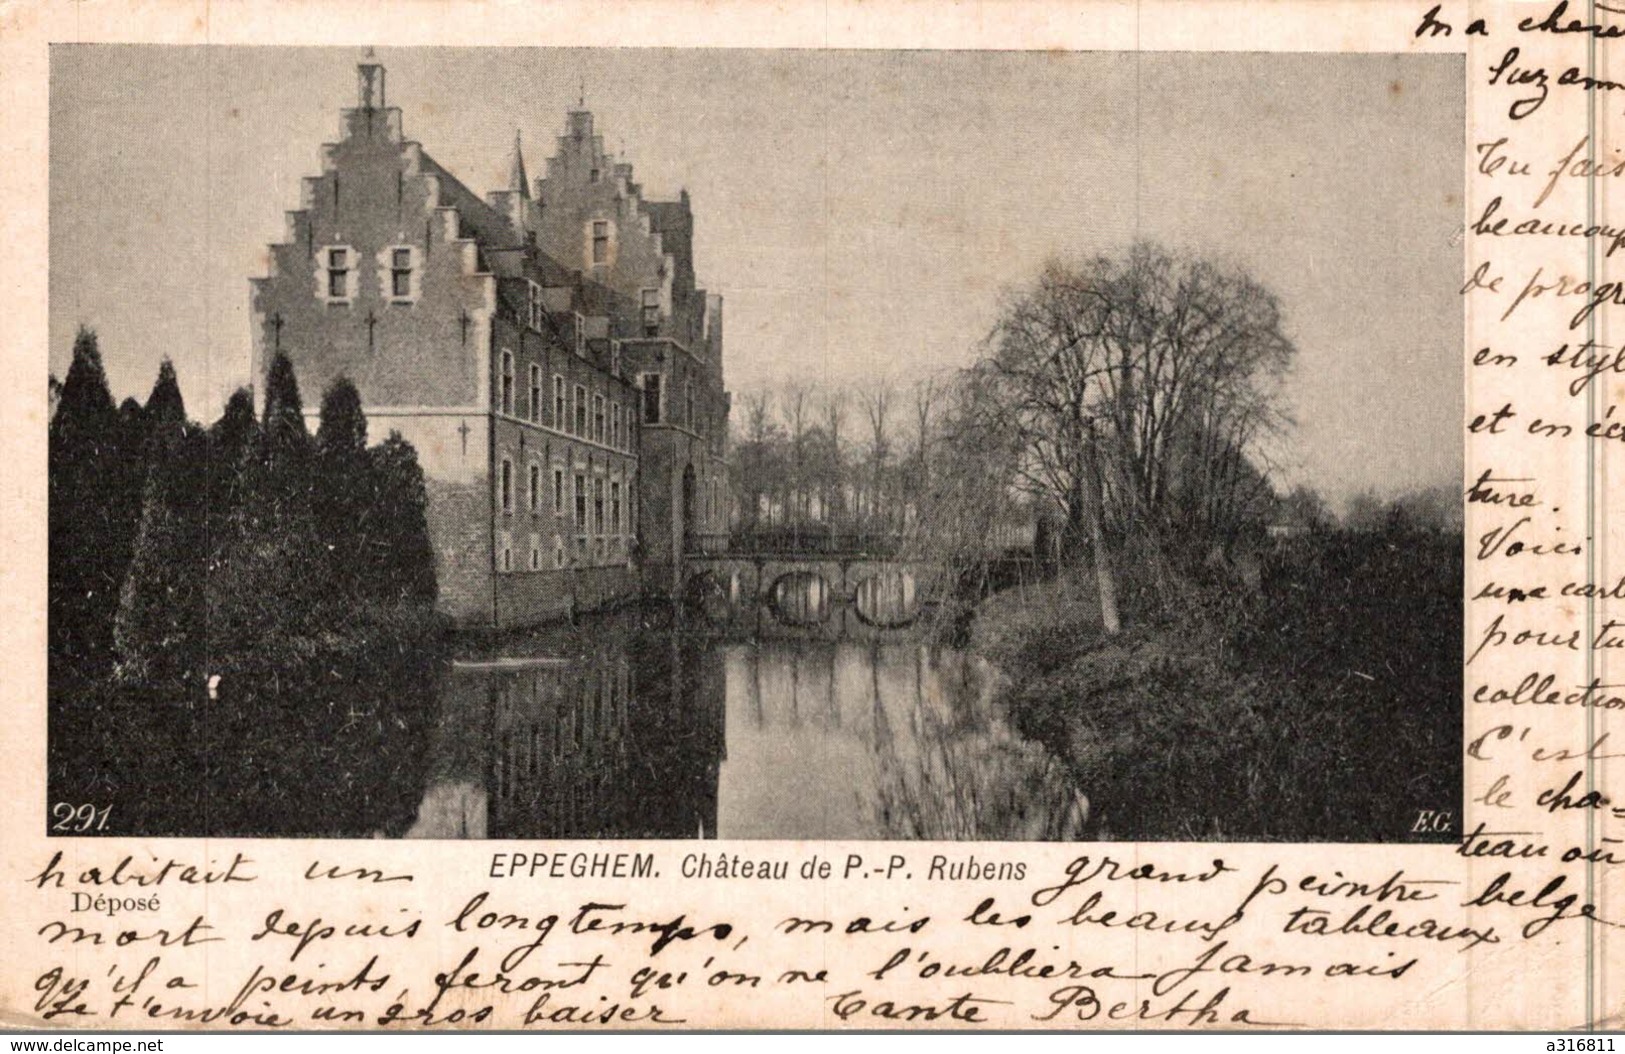 ma chère
Suzann
Tu fais
beaucoup
de progr
en styl
et en écr
ture.
Voici
une cart
pour ta
collection
C'est
le cha=
teau où
habitait un grand peintre belge
mort depuis longtemps, mais les beaux tableaux
qu'il a peints, feront qu'on ne l'oubliera jamais
Je t'envoie un gros baiser Tante Bertha
291.
E.G.
EPPEGHEM. Château de P.-P. Rubens
Déposé
www.delcampe.net
a316811